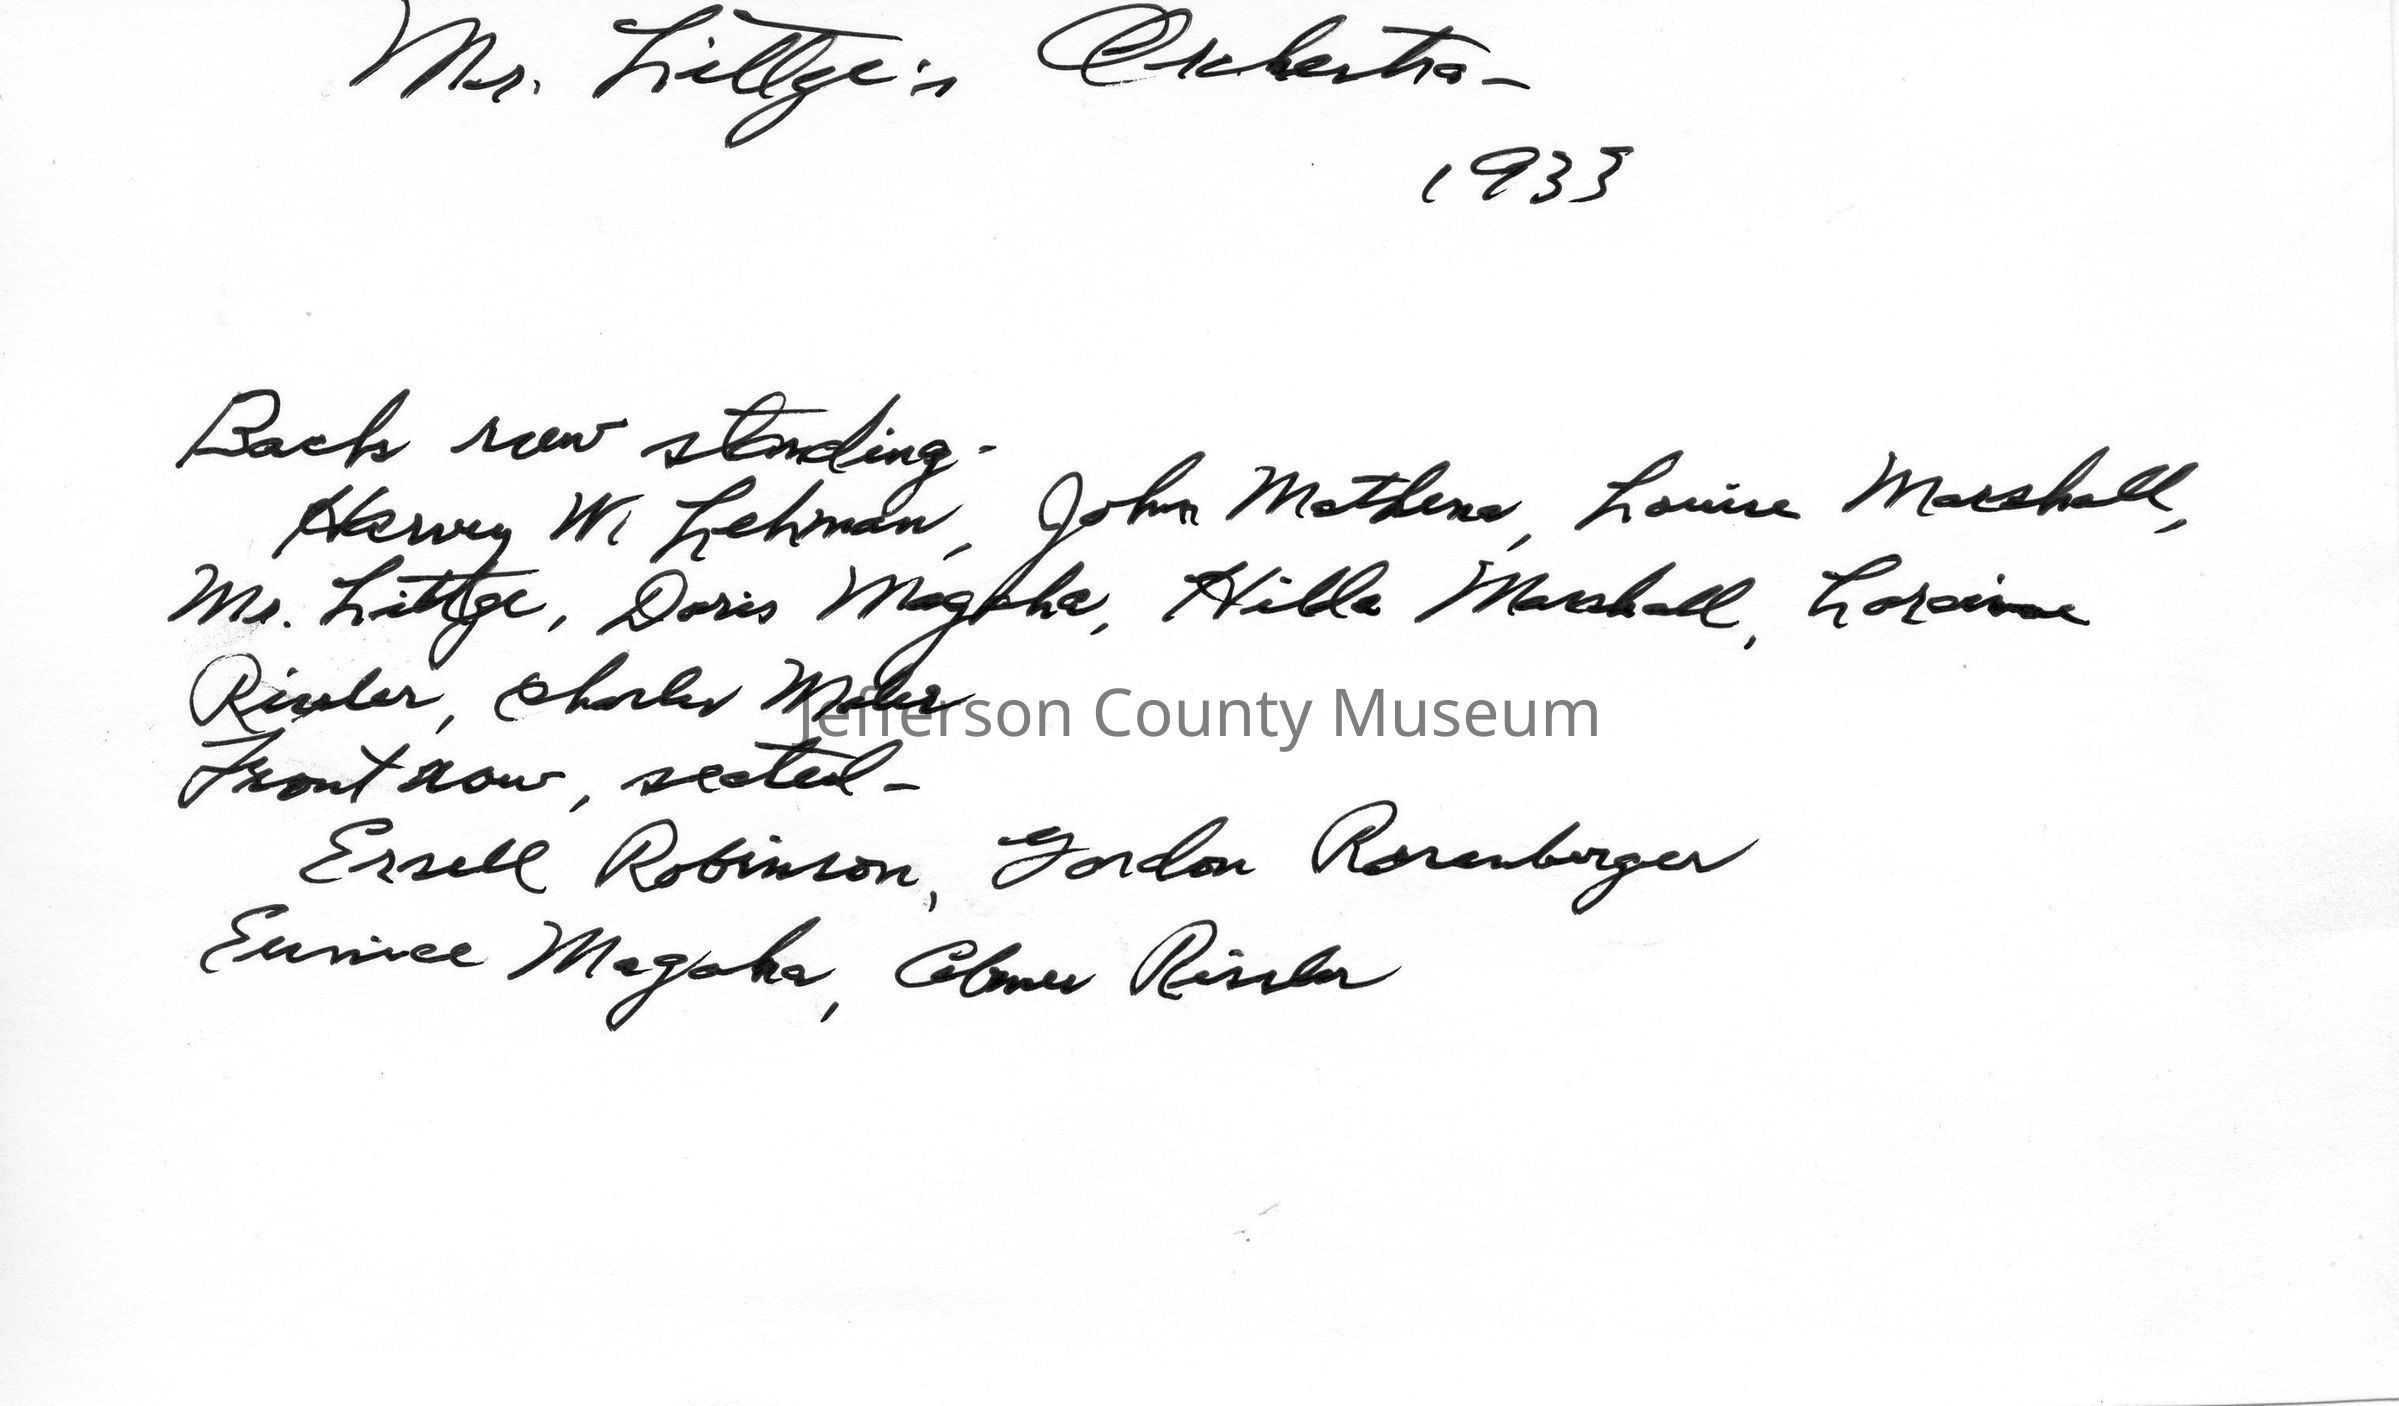 Mr. Littge's Orchestra-
1933
Back row standing-
Harvey W. Lehman, John Mathena, Louise Marshall,
Mr. Littge, Doris Magaha, Hilda Marshall, Loraine
Rissler, Charles Moler
Jefferson County Museum
Front row, seated-
Ersell Robinson, Gordon Rosenberger
Eunice Magaha, Rissler